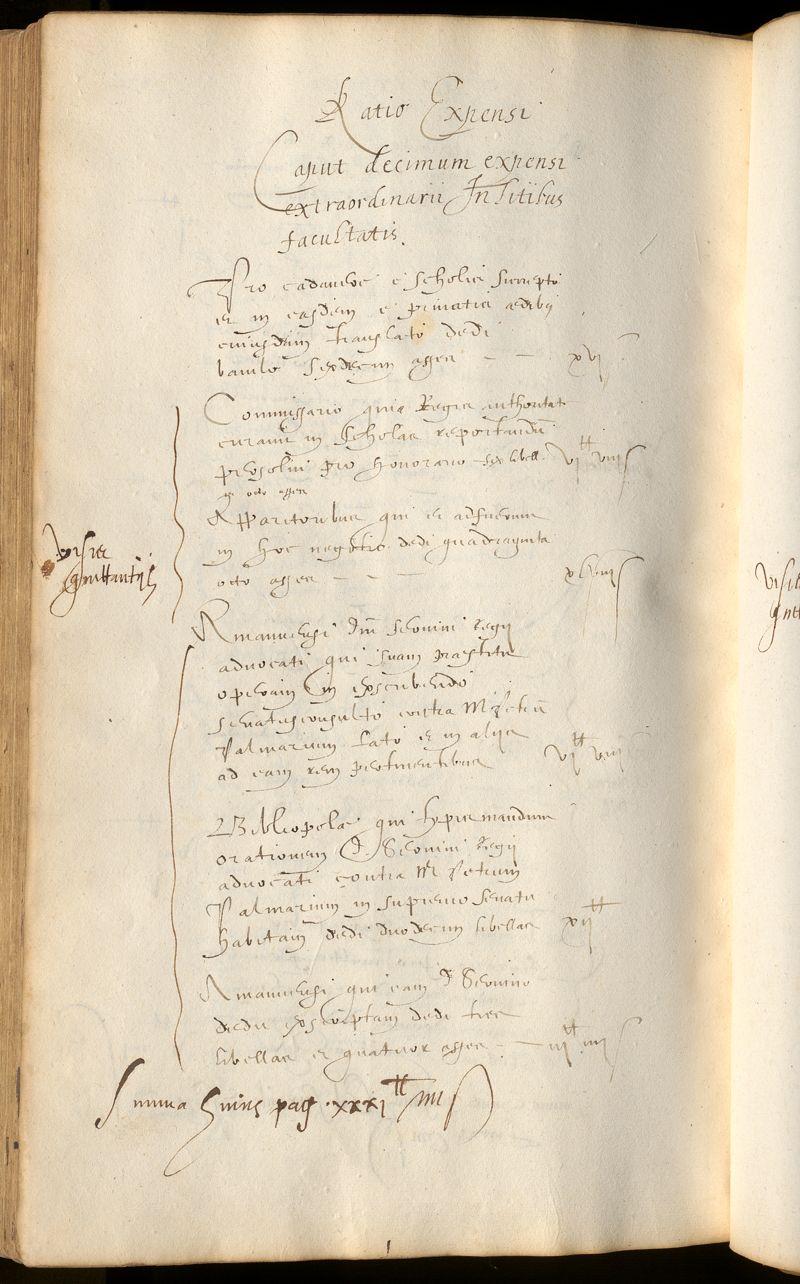 Ratio Expensi
Caput decimum expensi
extraordinarii In litibus
facultatis.
Pro cadavere e scholis surrepto
et in easdem e privatis aedibus
cuiusdam translato dedi
baiulo sexdecim asses — — xvj s
Commissario qui Regia authoritate
curavit in scholas reportandum
pro honorario sex libell. vj tt viij s
et octo asses
Apparitoribus qui ei adfuerunt
in hoc negotio dedi quadraginta
octo asses — — — xlviij s
Amanuensi Dni Servini Regii
advocati qui suam praestitit
operam in exscribendo
senatusconsulto contra M. Petrum
Palmarium lato et in aliis
ad eam rem pertinentibus vj tt viij s
Bibliopolae qui typis mandavit
orationem D. Servini Regii
advocati contra M. Petrum
Palmarium in supremo senatu
habitam dedi duodecim libellas xij tt
Amanuensi qui eam D. Servino
dedit exscriptam dedi tres
libellas et quatuor asses — iij tt iiij s
Summa huius pag. xxxj tt iiij s